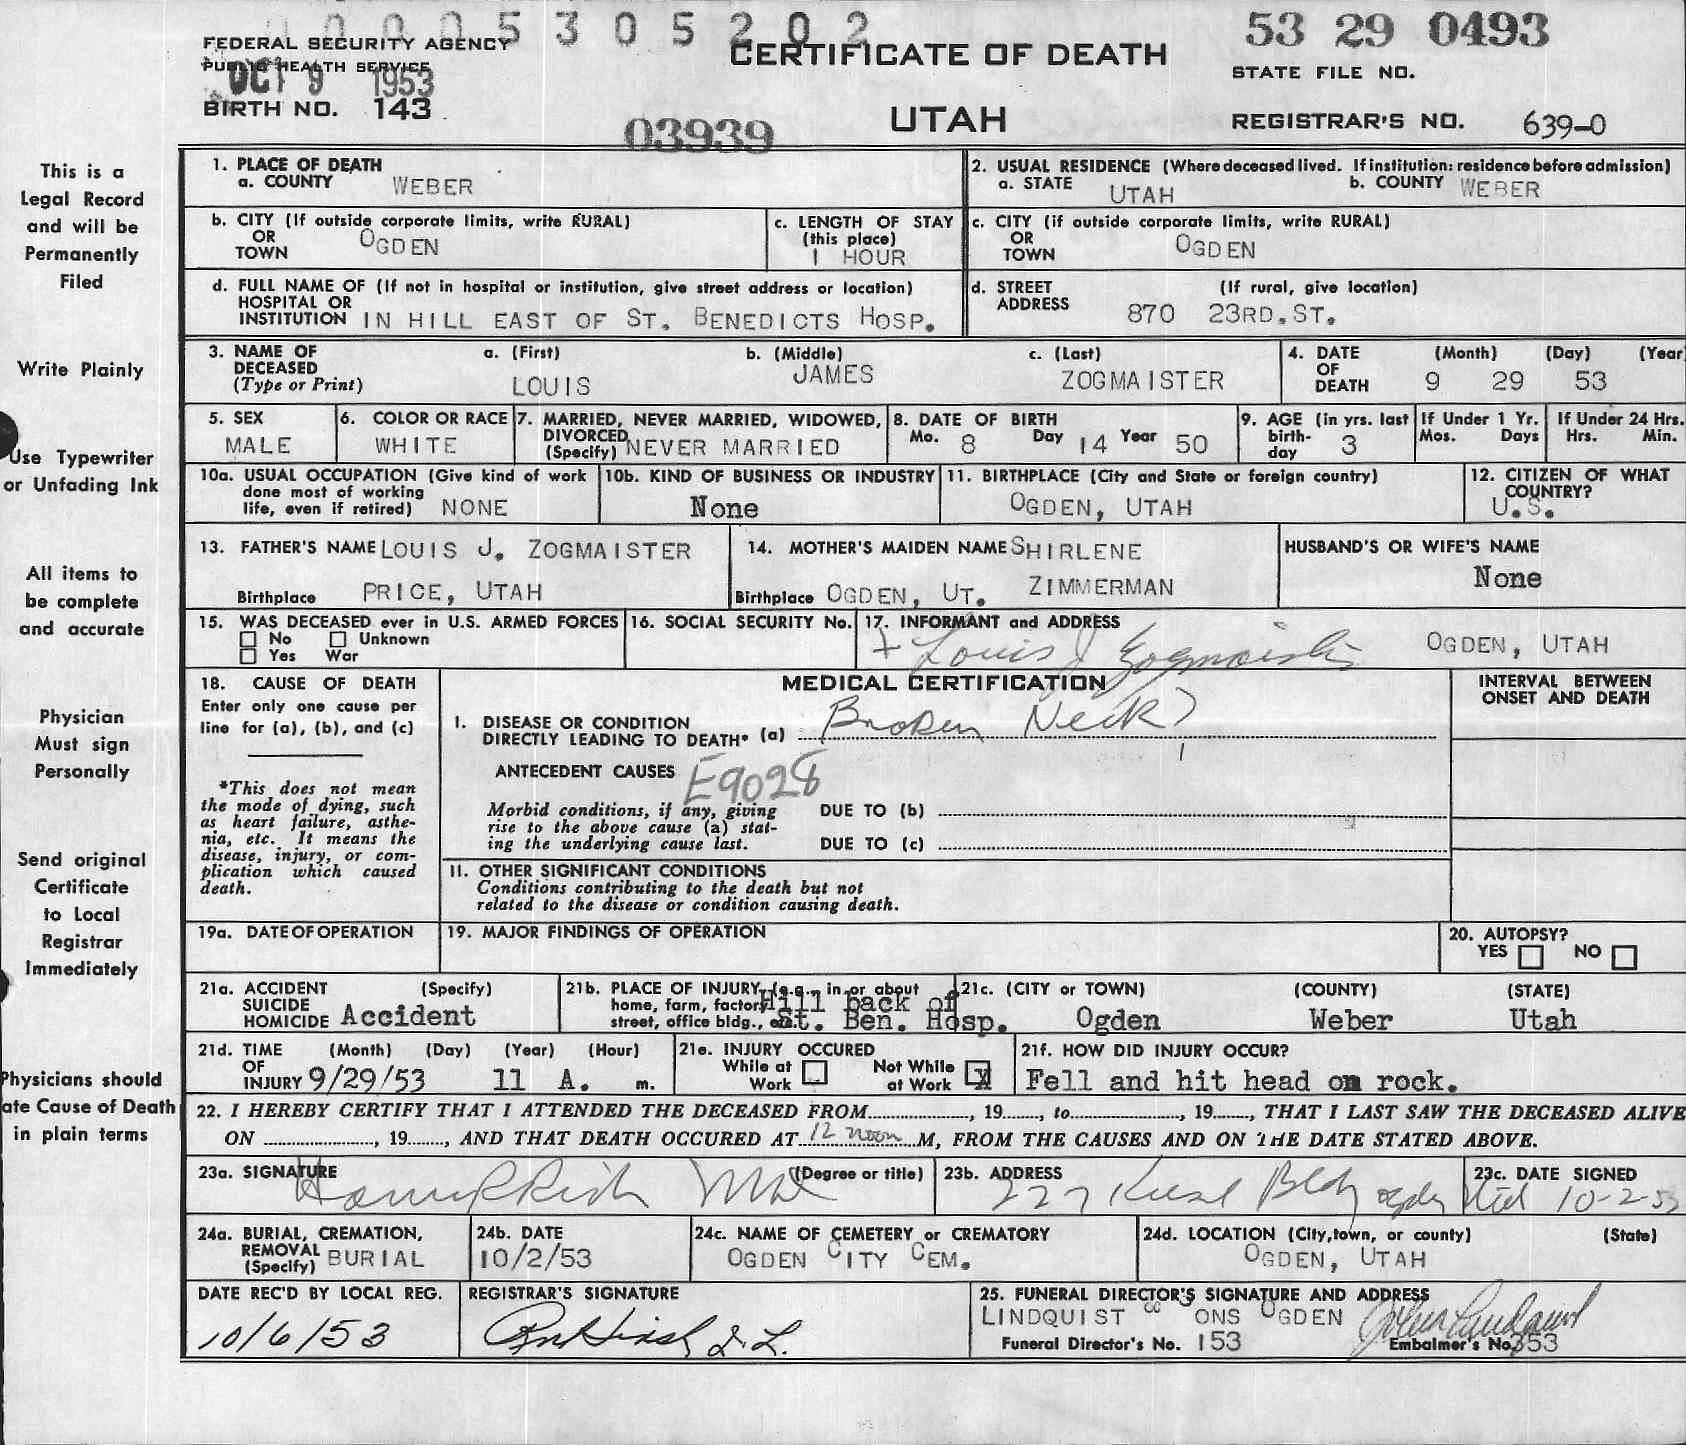 0 0 0 5 3 0 5 2 0 2
53 29 0493
FEDERAL SECURITY AGENCY
PUBLIC HEALTH SERVICE
OCT 9 1953
CERTIFICATE OF DEATH
STATE FILE NO.
BIRTH NO. 143
03939
UTAH
REGISTRAR'S NO. 639-0
This is a
Legal Record
and will be
Permanently
Filed
Write Plainly
Use Typewriter
or Unfading Ink
All items to
be complete
and accurate
Physician
Must sign
Personally
Send original
Certificate
to Local
Registrar
Immediately
Physicians should
ate Cause of Death
in plain terms
1. PLACE OF DEATH
a. COUNTY WEBER
2. USUAL RESIDENCE (Where deceased lived. If institution: residence before admission)
a. STATE UTAH b. COUNTY WEBER
b. CITY (If outside corporate limits, write RURAL)
OR
TOWN OGDEN
c. LENGTH OF STAY
(this place)
1 HOUR
c. CITY (if outside corporate limits, write RURAL)
OR
TOWN OGDEN
d. FULL NAME OF (If not in hospital or institution, give street address or location)
HOSPITAL OR
INSTITUTION IN HILL EAST OF ST. BENEDICTS HOSP.
d. STREET (If rural, give location)
ADDRESS 870 23RD.ST.
3. NAME OF a. (First) b. (Middle) c. (Last)
DECEASED
(Type or Print) LOUIS JAMES ZOGMAISTER
4. DATE (Month) (Day) (Year
OF
DEATH 9 29 53
5. SEX
MALE
6. COLOR OR RACE
WHITE
7. MARRIED, NEVER MARRIED, WIDOWED,
DIVORCED
(Specify) NEVER MARRIED
8. DATE OF BIRTH
Mo. 8 Day 14 Year 50
9. AGE (in yrs. last
birth-
day 3
If Under 1 Yr.
Mos. Days
If Under 24 Hrs.
Hrs. Min.
10a. USUAL OCCUPATION (Give kind of work
done most of working
life, even if retired) NONE
10b. KIND OF BUSINESS OR INDUSTRY
None
11. BIRTHPLACE (City and State or foreign country)
OGDEN, UTAH
12. CITIZEN OF WHAT
COUNTRY?
U.S.
13. FATHER'S NAME LOUIS J. ZOGMAISTER
Birthplace PRICE, UTAH
14. MOTHER'S MAIDEN NAME SHIRLENE
Birthplace OGDEN, UT. ZIMMERMAN
HUSBAND'S OR WIFE'S NAME
None
15. WAS DECEASED ever in U.S. ARMED FORCES
No Unknown
Yes War
16. SOCIAL SECURITY No.
17. INFORMANT and ADDRESS
+ Louis J Zogmaister OGDEN, UTAH
18. CAUSE OF DEATH
Enter only one cause per
line for (a), (b), and (c)
*This does not mean
the mode of dying, such
as heart failure, asthe-
nia, etc. It means the
disease, injury, or com-
plication which caused
death.
MEDICAL CERTIFICATION
I. DISEASE OR CONDITION
DIRECTLY LEADING TO DEATH* (a) Broken Neck
ANTECEDENT CAUSES E9028
Morbid conditions, if any, giving
rise to the above cause (a) stat-
ing the underlying cause last.
DUE TO (b)
DUE TO (c)
II. OTHER SIGNIFICANT CONDITIONS
Conditions contributing to the death but not
related to the disease or condition causing death.
INTERVAL BETWEEN
ONSET AND DEATH
19a. DATE OF OPERATION
19. MAJOR FINDINGS OF OPERATION
20. AUTOPSY?
YES NO
21a. ACCIDENT (Specify)
SUICIDE
HOMICIDE Accident
21b. PLACE OF INJURY (e.g., in or about
home, farm, factory, Hill back of
street, office bldg., etc. St. Ben. Hosp.
21c. (CITY or TOWN) (COUNTY) (STATE)
Ogden Weber Utah
21d. TIME (Month) (Day) (Year) (Hour)
OF
INJURY 9/29/53 11 A. m.
21e. INJURY OCCURED
While at Work Not While at Work X
21f. HOW DID INJURY OCCUR?
Fell and hit head on rock.
22. I HEREBY CERTIFY THAT I ATTENDED THE DECEASED FROM........, 19...., to........, 19...., THAT I LAST SAW THE DECEASED ALIVE
ON ........, 19...., AND THAT DEATH OCCURED AT 12 noon M, FROM THE CAUSES AND ON THE DATE STATED ABOVE.
23a. SIGNATURE (Degree or title)
MD
23b. ADDRESS
227 Kiesel Bldg Ogden Utah
23c. DATE SIGNED
10-2-53
24a. BURIAL, CREMATION,
REMOVAL
(Specify) BURIAL
24b. DATE
10/2/53
24c. NAME OF CEMETERY or CREMATORY
OGDEN CITY CEM.
24d. LOCATION (City,town, or county) (State)
OGDEN, UTAH
DATE REC'D BY LOCAL REG.
10/6/53
REGISTRAR'S SIGNATURE
25. FUNERAL DIRECTOR'S SIGNATURE AND ADDRESS
LINDQUIST ONS OGDEN
Funeral Director's No. 153 Embalmer's No. 353